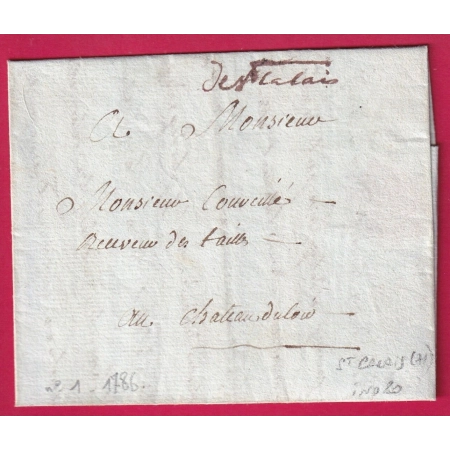 de St Calais
A Monsieur
Monsieur Couveillé
Receveur des tailles
au Chateauduloir
n° 1 - 1786.
ST CALAIS (71)